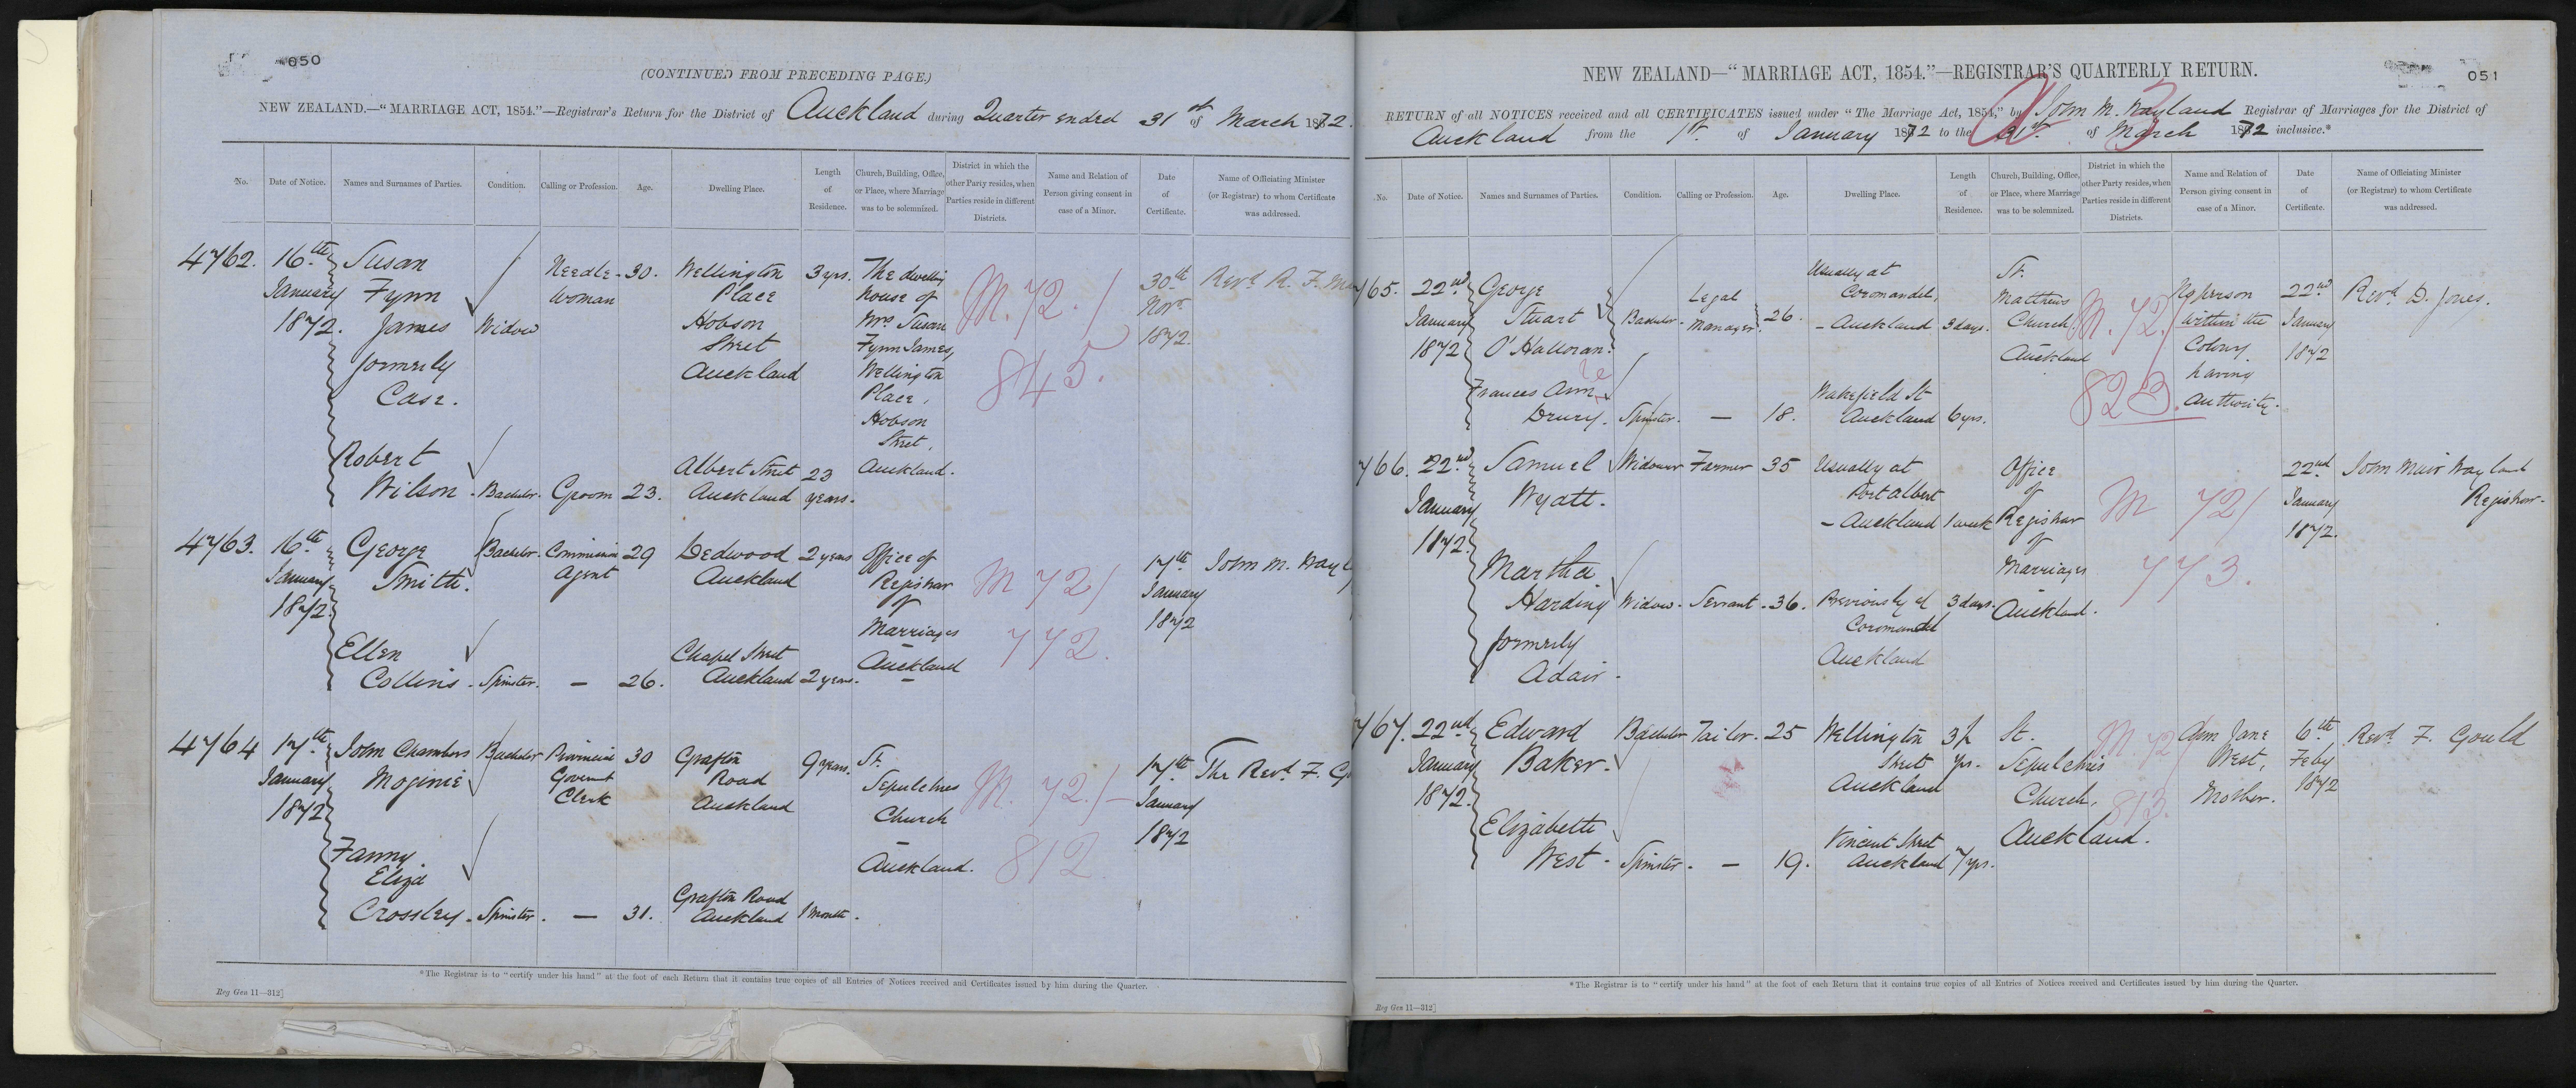 050
(CONTINUED FROM PRECEDING PAGE.)
NEW ZEALAND.—“MARRIAGE ACT, 1854.”—Registrar's Return for the District of Auckland during Quarter ended 31st of March 1872.
No.
Date of Notice.
Names and Surnames of Parties.
Condition.
Calling or Profession.
Age.
Dwelling Place.
Length
of
Residence.
Church, Building, Office,
or Place, where Marriage
was to be solemnized.
District in which the
other Party resides, when
Parties reside in different
Districts.
Name and Relation of
Person giving consent in
case of a Minor.
Date
of
Certificate.
Name of Officiating Minister
(or Registrar) to whom Certificate
was addressed.
4762.
16th
January
1872.
Susan
Fynn
James
formerly
Case.
Widow
Needle-
woman
30.
Wellington
Place
Hobson
Street
Auckland
3 yrs.
The dwelling
house of
Mrs Susan
Fynn James,
Wellington
Place,
Hobson
Street,
Auckland.
M. 72. /
845.
30th
Novr
1872.
Revd R. F.
Robert
Wilson.
Bachelor.
Groom
23.
Albert Street
Auckland
23
years.
4763.
16th
January
1872.
George
Smith.
Bachelor.
Commission
Agent
29
Dedwood
Auckland
2 years
Office of
Registrar
of
Marriages
Auckland
M 72/
772.
17th
January
1872
John M. Wayl
Ellen
Collins.
Spinster.
—
26.
Chapel Street
Auckland
2 years.
4764
17th
January
1872
John Chambers
Moginie
Bachelor
Provincial
Governt
Clerk
30
Grafton
Road
Auckland
9 years.
St.
Sepulchres
Church
Auckland.
M. 72./
812
17th
January
1872
The Revd. F. Go
Fanny
Eliza
Crossley.
Spinster.
—
31.
Grafton Road
Auckland
1 month.
*The Registrar is to “certify under his hand” at the foot of each Return that it contains true copies of all Entries of Notices received and Certificates issued by him during the Quarter.
Reg Gen 11—312]
051
NEW ZEALAND—“MARRIAGE ACT, 1854.”—REGISTRAR'S QUARTERLY RETURN.
RETURN of all NOTICES received and all CERTIFICATES issued under “The Marriage Act, 1854,” by John M. Wayland Registrar of Marriages for the District of
Auckland from the 1st. of January 1872 to the 31st. of March 1872 inclusive.*
No.
Date of Notice.
Names and Surnames of Parties.
Condition.
Calling or Profession.
Age.
Dwelling Place.
Length
of
Residence.
Church, Building, Office,
or Place, where Marriage
was to be solemnized.
District in which the
other Party resides, when
Parties reside in different
Districts.
Name and Relation of
Person giving consent in
case of a Minor.
Date
of
Certificate.
Name of Officiating Minister
(or Registrar) to whom Certificate
was addressed.
765.
22nd
January
1872
George
Stuart
O'Halloran.
Bachelor
Legal
Manager
26.
Usually at
Coromandel,
- Auckland
3 days.
St.
Matthews
Church,
Auckland
M. 72./
823.
No person
within the
Colony
having
authority.
22nd
January
1872
Revd. D. Jones.
Frances Ann
Drury.
Spinster.
—
18.
Wakefield St
Auckland
6 yrs.
766.
22nd
January
1872.
Samuel
Wyatt.
Widower
Farmer
35
Usually at
Port Albert
- Auckland
1 week
Office
of
Registrar
of
Marriages
Auckland.
M 72/
773.
22nd
January
1872.
John Muir Wayland
Registrar.
Martha
Harding
formerly
Adair.
Widow.
Servant.
36.
Previously of
Coromandel
Auckland
3 days.
767.
22nd
January
1872.
Edward
Baker.
Bachelor
Tailor.
25
Wellington
Street
Auckland
3½
yrs.
St.
Sepulchres
Church,
Auckland.
M. 72
813.
Ann Jane
West,
Mother.
6th
Feby
1872
Revd. F. Gould
Elizabeth
West.
Spinster.
—
19.
Vincent Street
Auckland
7 yrs.
*The Registrar is to “certify under his hand” at the foot of each Return that it contains true copies of all Entries of Notices received and Certificates issued by him during the Quarter.
Reg Gen 11—312]